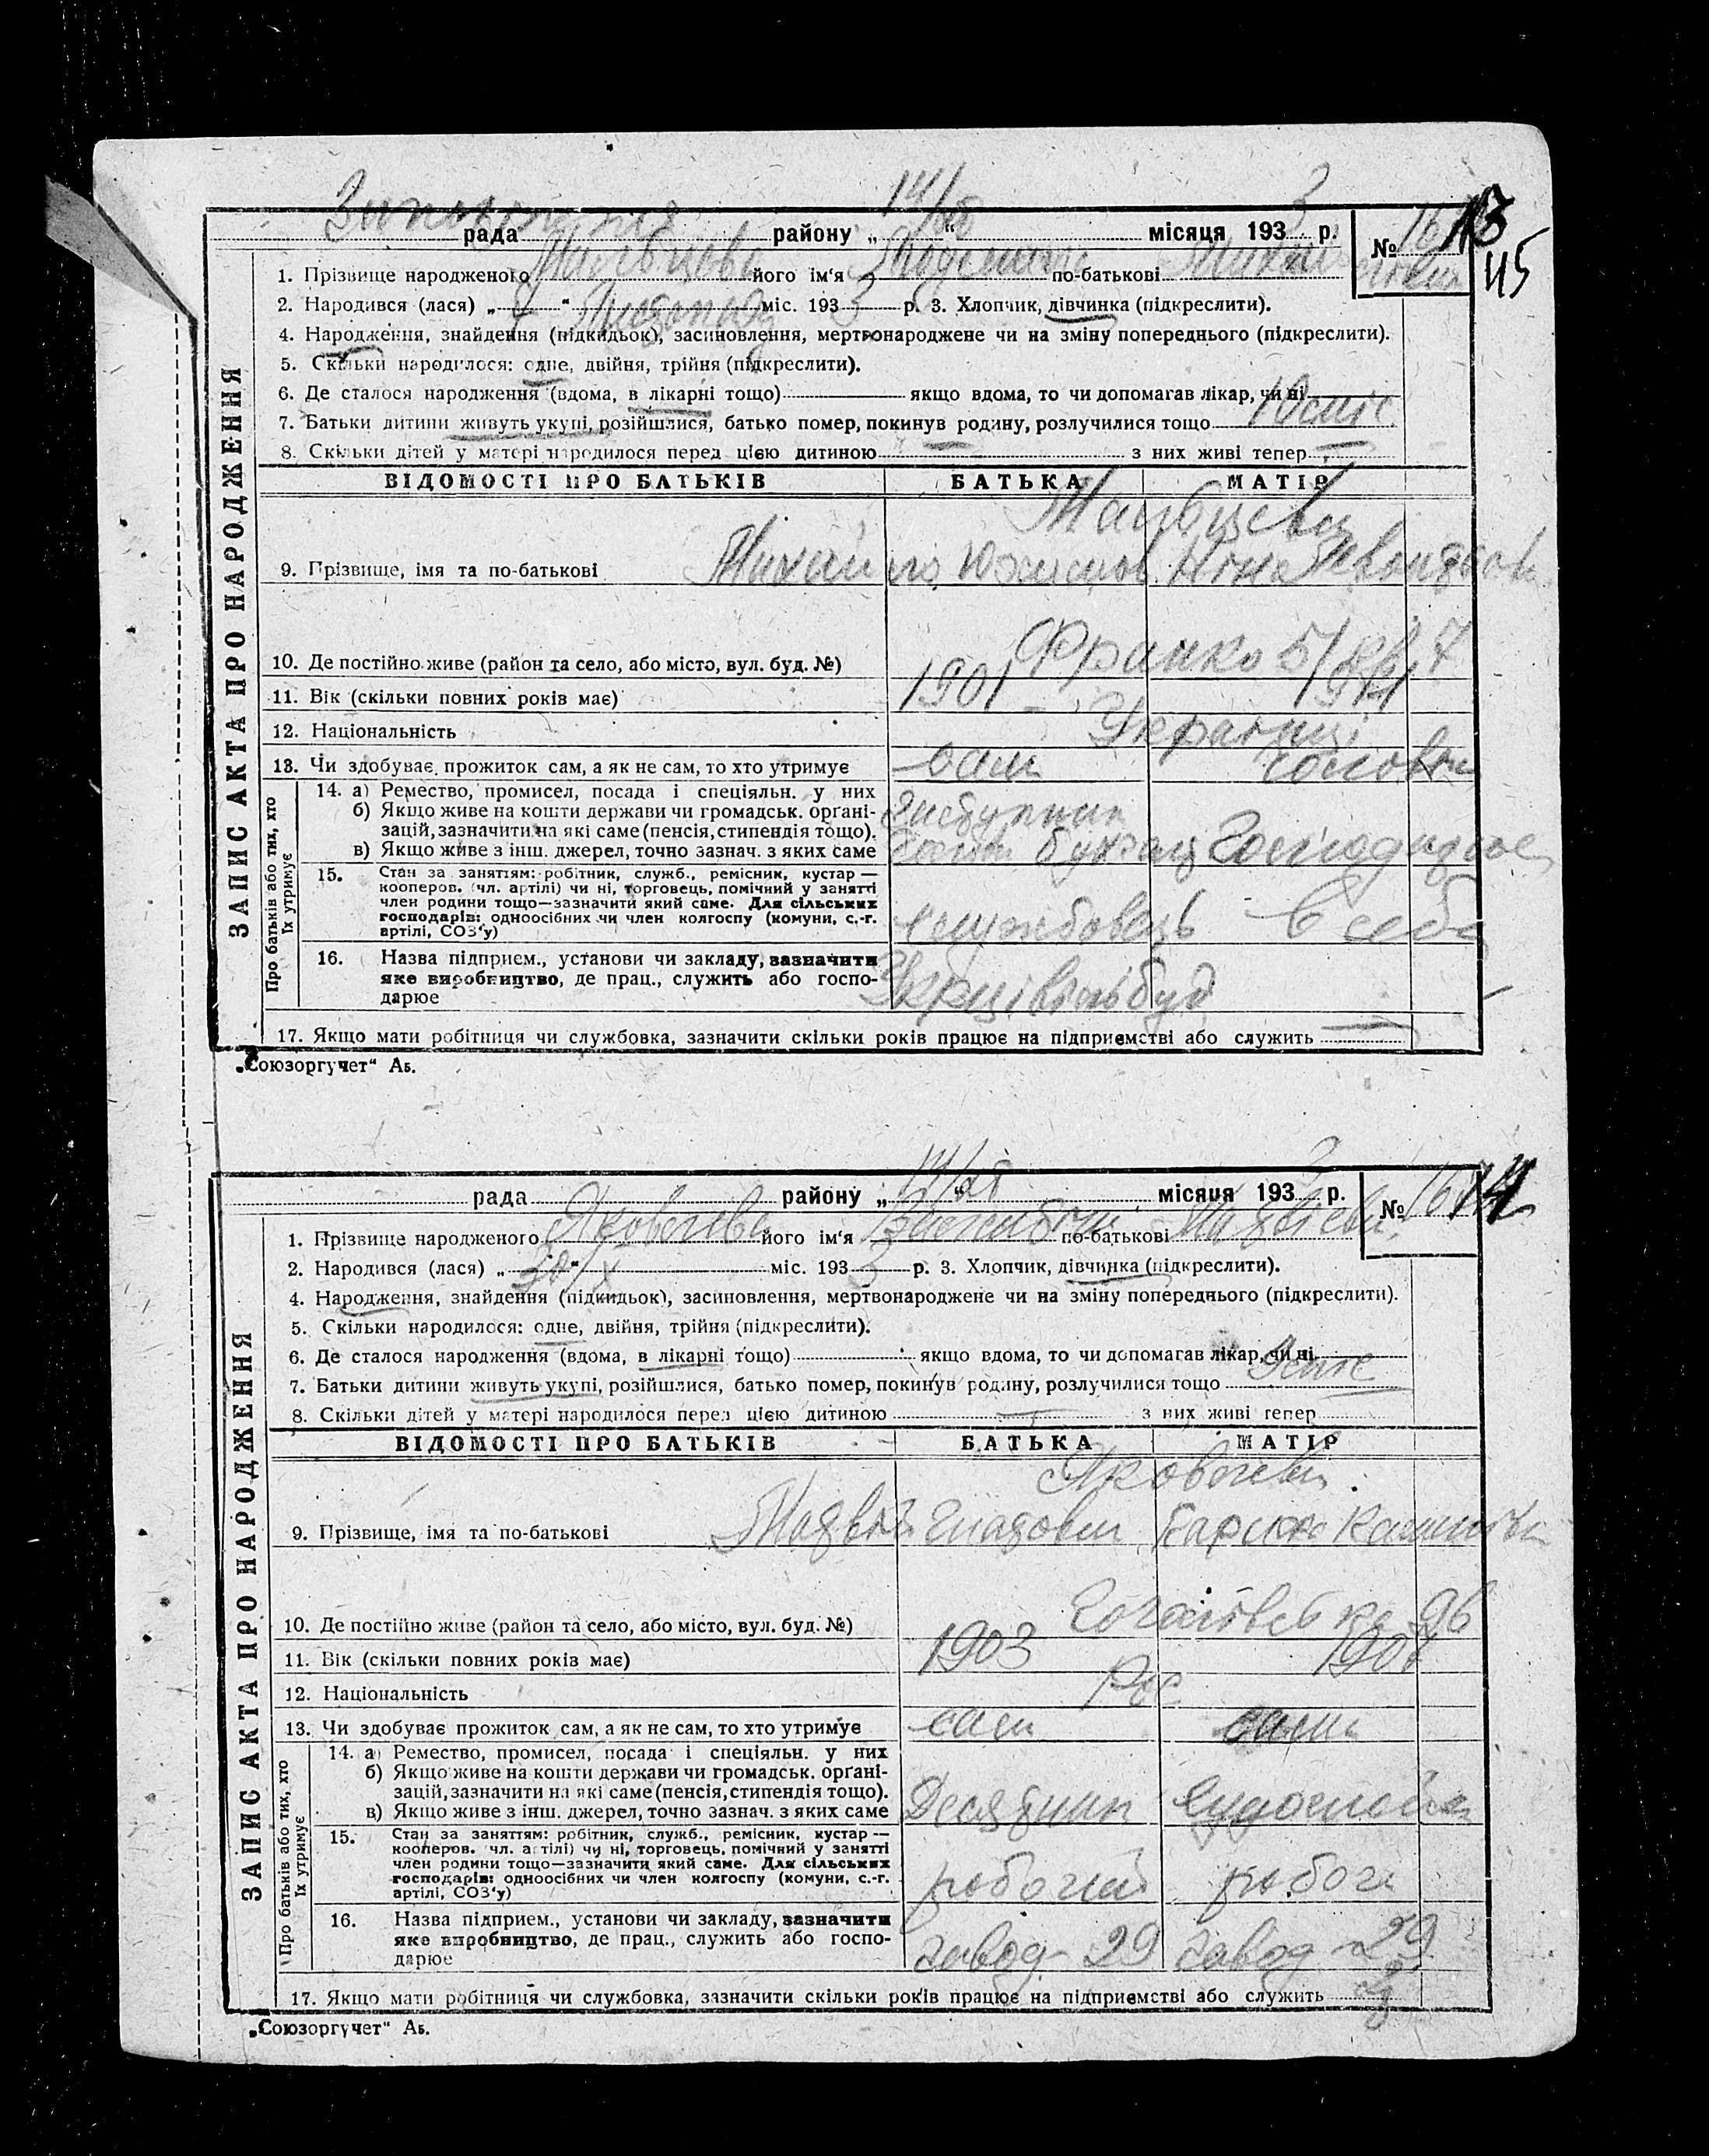 14/XII 3
рада района „ “ місяця 193 р. №
13
45
1. Прізвище народженого Мальцева його ім'я по-батькові
2. Народився (лася) „ “ Листопад міс. 193 3 р. 3. Хлопчик, дівчинка (підкреслити).
4. Народження, знайдення (підкидьок), засиновлення, мертвонароджене чи на зміну попереднього (підкреслити).
5. Скільки народилося: одне, двійня, трійня (підкреслити).
6. Де сталося народження (вдома, в лікарні тощо) якщо вдома, то чи допомагав лікар, чи ні
7. Батьки дитини живуть укупі, розійшлися, батько помер, покинув родину, розлучилися тощо
8. Скільки дітей у матері народилося перед цією дитиною — з них живі тепер —
ЗАПИС АКТА ПРО НАРОДЖЕННЯ
ВІДОМОСТІ ПРО БАТЬКІВ БАТЬКА МАТІР
Мальцеви
9. Прізвище, імя та по-батькові Михайло Ніна
10. Де постійно живе (район та село, або місто, вул. буд. №) Франко 5/кв. 7
11. Вік (скільки повних років має) 1901 1911
12. Національність Українці
13. Чи здобуває прожиток сам, а як не сам, то хто утримує сам чоловік
Про батьків або тих, хто їх утримує
14. а) Ремество, промисел, посада і спеціяльн. у них
б) Якщо живе на кошти держави чи громадськ. орґані-
зацій, зазначити на які саме (пенсія, стипендія тощо).
в) Якщо живе з інш. джерел, точно зазнач. з яких саме
15. Стан за заняттям: робітник, служб., ремісник, кустар —
кооперов. (чл. артілі) чи ні, торговець, помічний у занятті
член родини тощо—зазначити який саме. Для сільських
господарів: одноосібних чи член колгоспу (комуни, с.-г.
артілі, СОЗ'у) службовець в себе
16. Назва підприєм., установи чи закладу, зазначити
яке виробництво, де прац., служить або госпо-
дарює Укрцівільбуд —
17. Якщо мати робітниця чи службовка, зазначити скільки років працює на підприємстві або служить —
„Союзоргучет“ Аб.
14/XII 3
рада району „ “ місяця 193 р. №
14
1. Прізвище народженого Яковлева його ім'я по-батькові
2. Народився (лася) „30“ X міс. 193 3 р. 3. Хлопчик, дівчинка (підкреслити).
4. Народження, знайдення (підкидьок), засиновлення, мертвонароджене чи на зміну попереднього (підкреслити).
5. Скільки народилося: одне, двійня, трійня (підкреслити).
6. Де сталося народження (вдома, в лікарні тощо) якщо вдома, то чи допомагав лікар, чи ні
7. Батьки дитини живуть укупі, розійшлися, батько помер, покинув родину, розлучилися тощо
8. Скільки дітей у матері народилося перед цією дитиною — з них живі тепер
ЗАПИС АКТА ПРО НАРОДЖЕННЯ
ВІДОМОСТІ ПРО БАТЬКІВ БАТЬКА МАТІР
Яковлеви
9. Прізвище, імя та по-батькові
10. Де постійно живе (район та село, або місто, вул. буд. №)
11. Вік (скільки повних років має) 1903 1907
12. Національність Рус
13. Чи здобуває прожиток сам, а як не сам, то хто утримує сам сама
Про батьків або тих, хто їх утримує
14. а) Ремество, промисел, посада і спеціяльн. у них
б) Якщо живе на кошти держави чи громадськ. орґані-
зацій, зазначити на які саме (пенсія, стипендія тощо).
в) Якщо живе з інш. джерел, точно зазнач. з яких саме Десятник
15. Стан за заняттям: робітник, служб., ремісник, кустар —
кооперов. (чл. артілі) чи ні, торговець, помічний у занятті
член родини тощо—зазначити який саме. Для сільських
господарів: одноосібних чи член колгоспу (комуни, с.-г.
артілі, СОЗ'у) робочий робоч
16. Назва підприєм., установи чи закладу, зазначити
яке виробництво, де прац., служить або госпо-
дарює завод 29 завод 29
17. Якщо мати робітниця чи службовка, зазначити скільки років працює на підприємстві або служить
„Союзоргучет“ Аб.